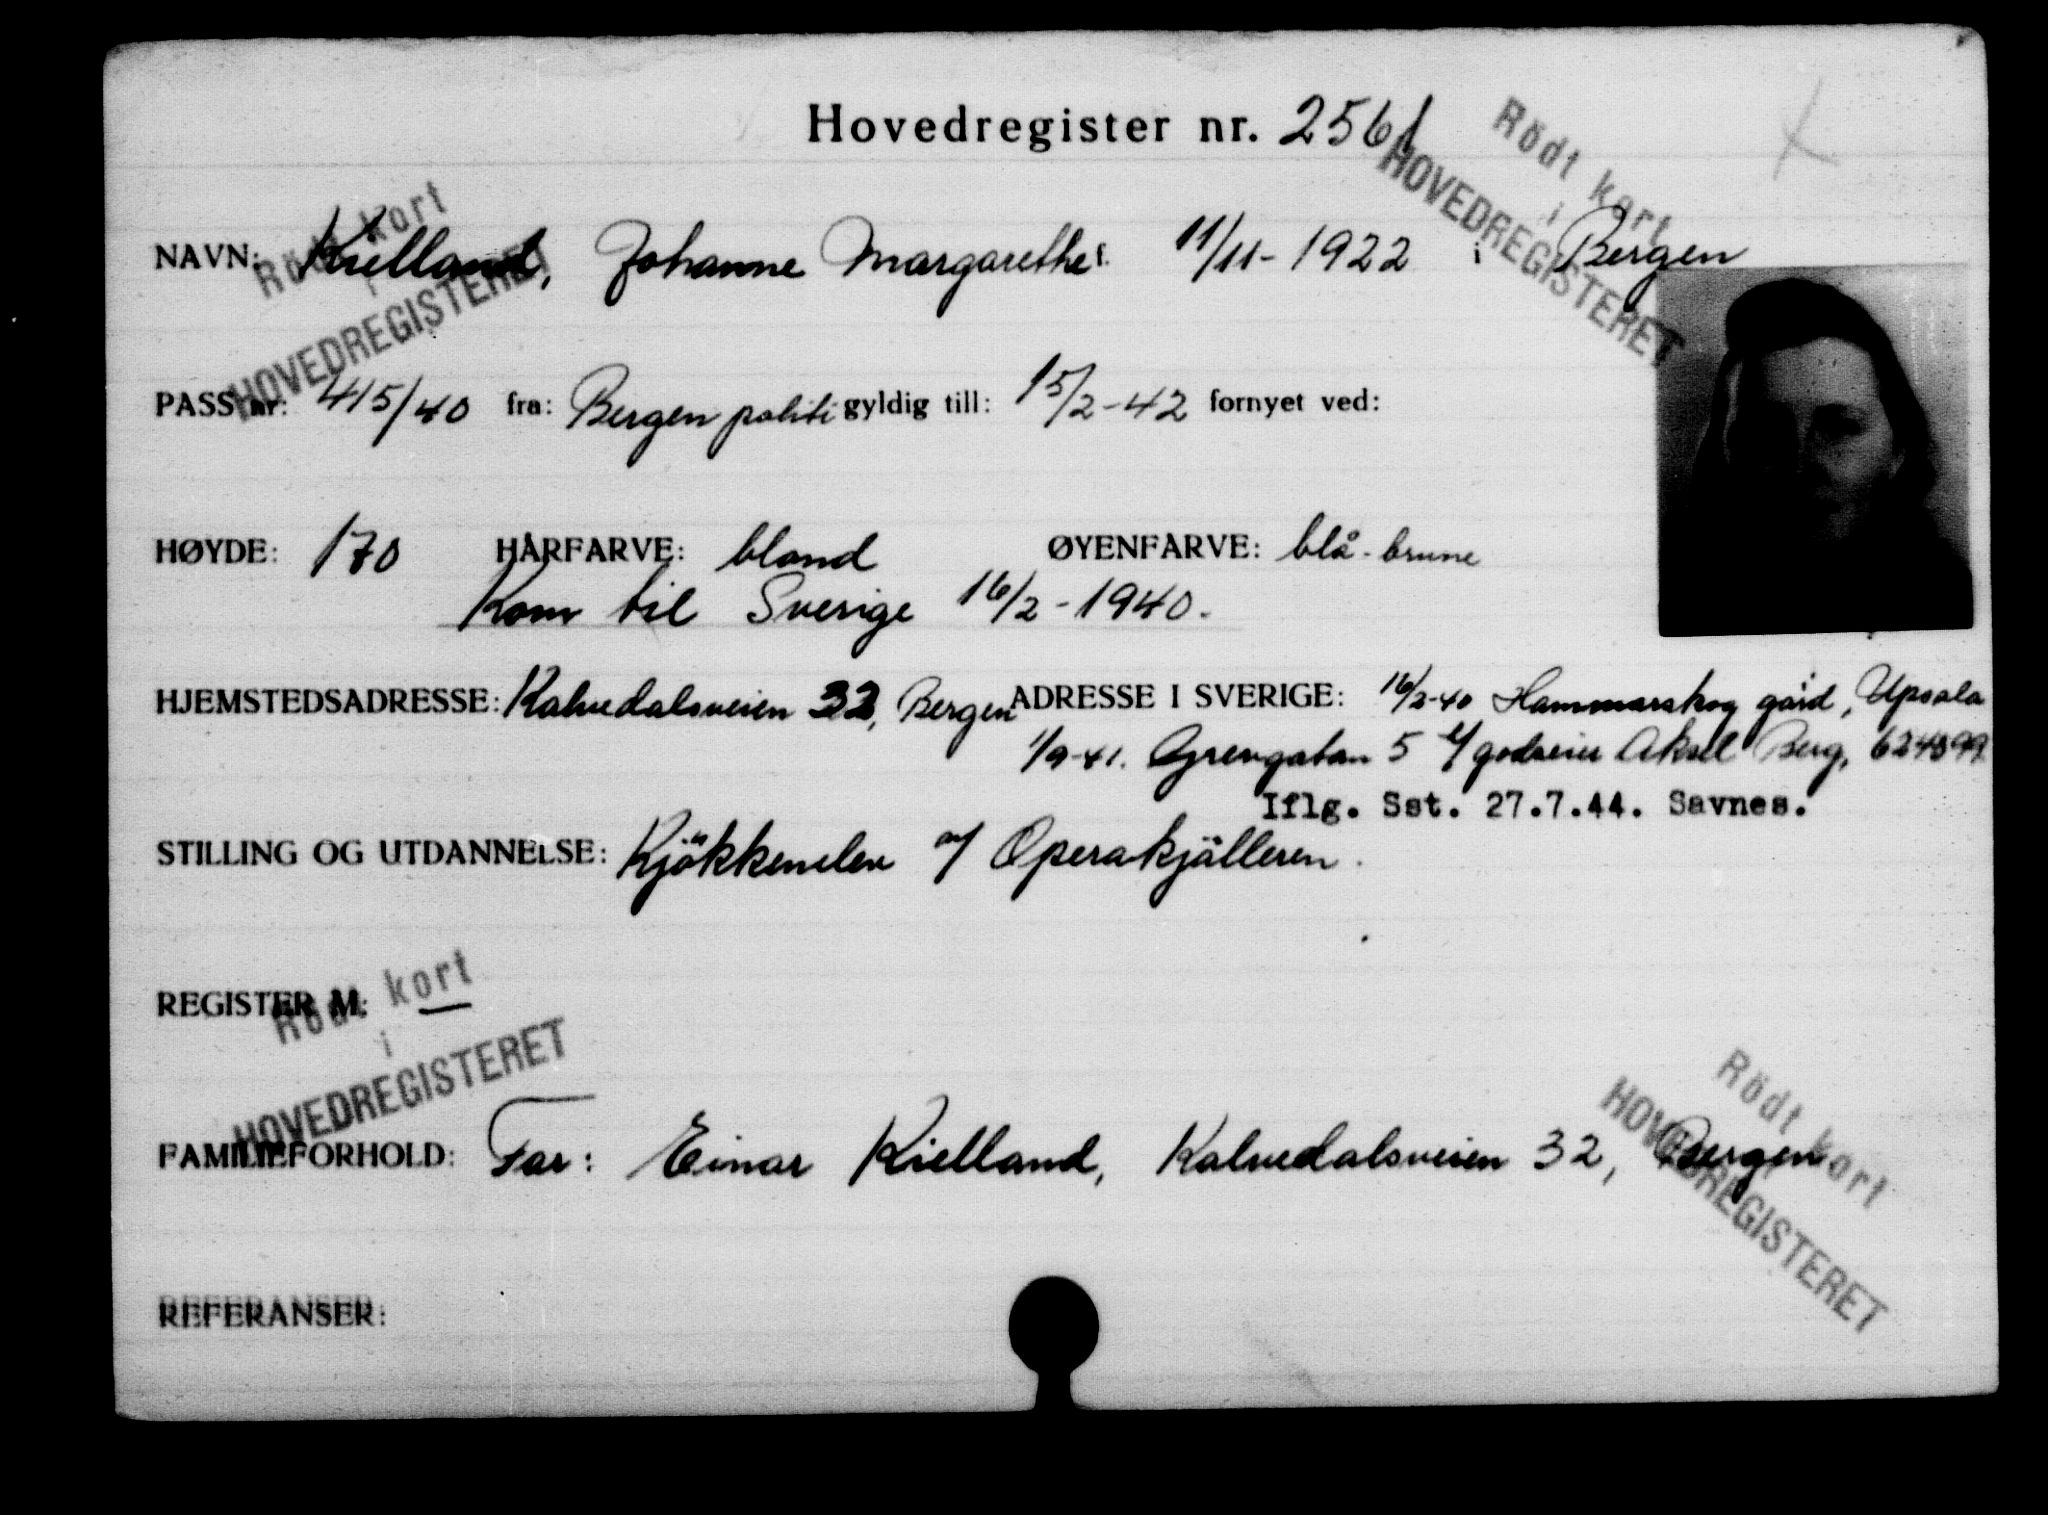 Hovedregister nr. 2561
Rödt kort
i
HOVEDREGISTERET
Rödt kort
i
HOVEDREGISTERET
NAVN: Kielland, Johanne Margarethe f. 11/11-1922 i Bergen
PASS nr: 415/40 fra: Bergen politi gyldig till: 15/2-42 fornyet ved:
HØYDE: 170 HÅRFARVE: blond ØYENFARVE: blå-brune
Kom til Sverige 16/2-1940.
HJEMSTEDSADRESSE: Kalvedalsveien 32, Bergen ADRESSE I SVERIGE: 16/2-40 Hammarskog gård, Upsala
1/9-41. Grevgatan 5 c/ godseier Aksel Berg, 624899
Iflg. Sst. 27.7.44. Savnes.
STILLING OG UTDANNELSE: Kjökkenelev Operakjälleren.
REGISTER M: —
Rödt kort
i
HOVEDREGISTERET
FAMILIEFORHOLD: Far: Einar Kielland, Kalvedalsveien 32, Bergen
Rödt kort
HOVEDREGISTERET
REFERANSER: